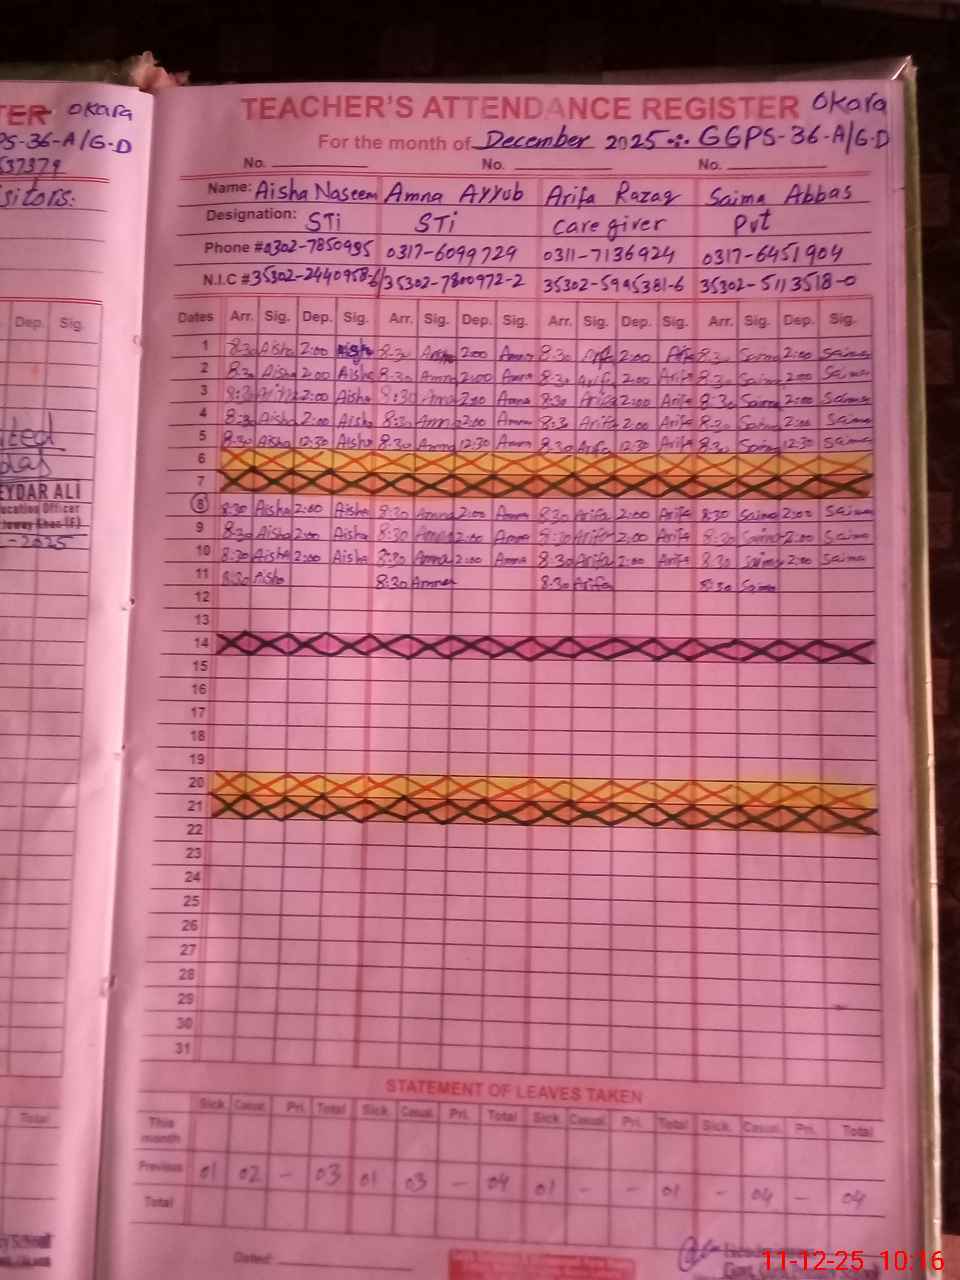 TER Okara
PS-36-A/G-D
537379
sitors:
Dep. Sig.
EYDAR ALI
Total
TEACHER'S ATTENDANCE REGISTER Okara
For the month of December 2025 GGPS-36-A/G-D
No. No. No.
Name: Aisha Naseem Amna Ayyub Arifa Razaq Saima Abbas
Designation: STi STi Care giver Pvt
Phone # 0302-7850995 0317-6099729 0311-7136924 0317-6451904
N.I.C # 35302-2440958-6 35302-7800972-2 35302-5945381-6 35302-5113518-0
Dates Arr. Sig. Dep. Sig. Arr. Sig. Dep. Sig. Arr. Sig. Dep. Sig. Arr. Sig. Dep. Sig.
1 8:30 Aisha 2:00 Aisha 8:30 Amna 2:00 Amna 8:30 Arifa 2:00 Arifa 8:30 Saima 2:00 Saima
2 8:30 Aisha 2:00 Aisha 8:30 Amna 2:00 Amna 8:30 Arifa 2:00 Arifa 8:30 Saima 2:00 Saima
3 8:30 Aisha 2:00 Aisha 8:30 Amna 2:00 Amna 8:30 Arifa 2:00 Arifa 8:30 Saima 2:00 Saima
4 8:30 Aisha 2:00 Aisha 8:30 Amna 2:00 Amna 8:30 Arifa 2:00 Arifa 8:30 Saima 2:00 Saima
5 8:30 Aisha 12:30 Aisha 8:30 Amna 12:30 Amna 8:30 Arifa 12:30 Arifa 8:30 Saima 12:30 Saima
6
7
8 8:30 Aisha 2:00 Aisha 8:30 Amna 2:00 Amna 8:30 Arifa 2:00 Arifa 8:30 Saima 2:00 Saima
9 8:30 Aisha 2:00 Aisha 8:30 Amna 2:00 Amna 8:30 Arifa 2:00 Arifa 8:30 Saima 2:00 Saima
10 8:30 Aisha 2:00 Aisha 8:30 Amna 2:00 Amna 8:30 Arifa 2:00 Arifa 8:30 Saima 2:00 Saima
11 8:30 Aisha 8:30 Amna 8:30 Arifa 8:30 Saima
12
13
14
15
16
17
18
19
20
21
22
23
24
25
26
27
28
29
30
31
STATEMENT OF LEAVES TAKEN
Sick Casual Pri. Total Sick Casual Pri. Total Sick Casual Pri. Total Sick Casual Pri. Total
This month
Previous 01 02 - 03 01 03 - 04 01 - - 01 - 04 - 04
Total
Dated:
11-12-25 10:16